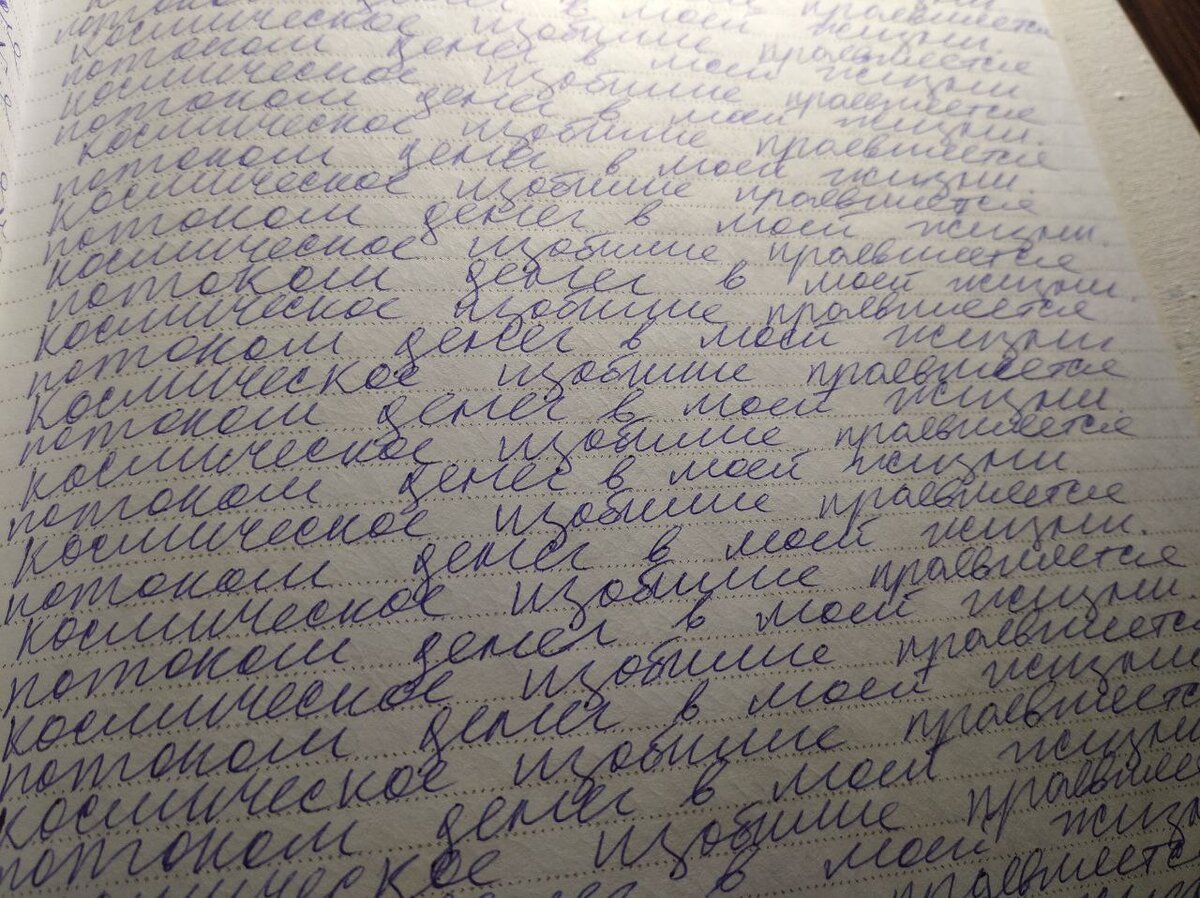 потоком денег в моей жизни
космическое изобилие проявляется
потоком денег в моей жизни.
космическое изобилие проявляется
потоком денег в моей жизни
космическое изобилие проявляется
потоком денег в моей жизни.
космическое изобилие проявляется
потоком денег в моей жизни.
космическое изобилие проявляется
потоком денег в моей жизни.
космическое изобилие проявляется
потоком денег в моей жизни.
космическое изобилие проявляется
потоком денег в моей жизни
космическое изобилие проявляется
потоком денег в моей жизни.
космическое изобилие проявляется
потоком денег в моей жизни
космическое изобилие проявляется
потоком денег в моей жизни.
космическое изобилие проявляется
потоком денег в моей жизни.
космическое изобилие проявляется
потоком денег в моей жизни
космическое изобилие проявляется
потоком денег в моей жизни
космическое изобилие проявляется
в моей
проявляется